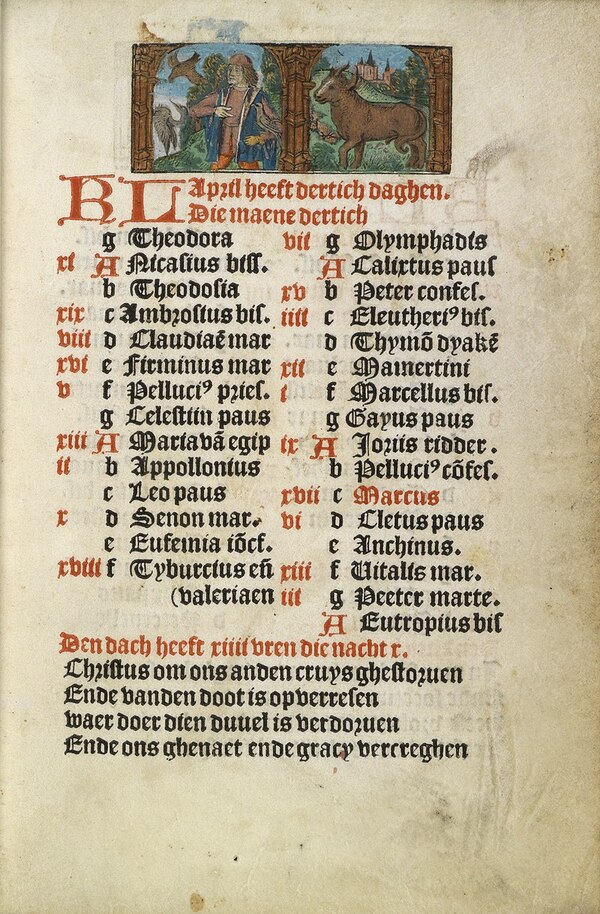 KL April heeft dertich daghen.
Die maene dertich
g Theodora
xi A Nicasius biss.
b Theodosia
xix c Ambrosius bis.
viii d Claudiaē mar
xvi e Firminus mar
v f Pelluciꝰ pries.
g Celestiin paus
xiii A Maria vā egip
ii b Appollonius
c Leo paus
x d Senon mar.
e Eufemia iōcf.
xviii f Tyburcius eñ
(valeriaen
vii g Olymphadis
A Calixtus paus
xv b Peter confes.
iiii c Eleutheriꝰ bis.
d Thymō dyakē
xii e Mamertini
i f Marcellus bis.
g Gayus paus
ix A Joriis ridder.
b Pelluciꝰ cōfes.
xvii c Marcus
vi d Cletus paus
e Anchinus.
xiii f Vitalis mar.
iii g Peeter marte.
A Eutropius bis
Den dach heeft xiiii vren die nacht x.
Christus om ons anden cruys ghestoruen
Ende vanden doot is op verresen
waer doer dien duuel is verdoruen
Ende ons ghenaet ende gracy vercreghen